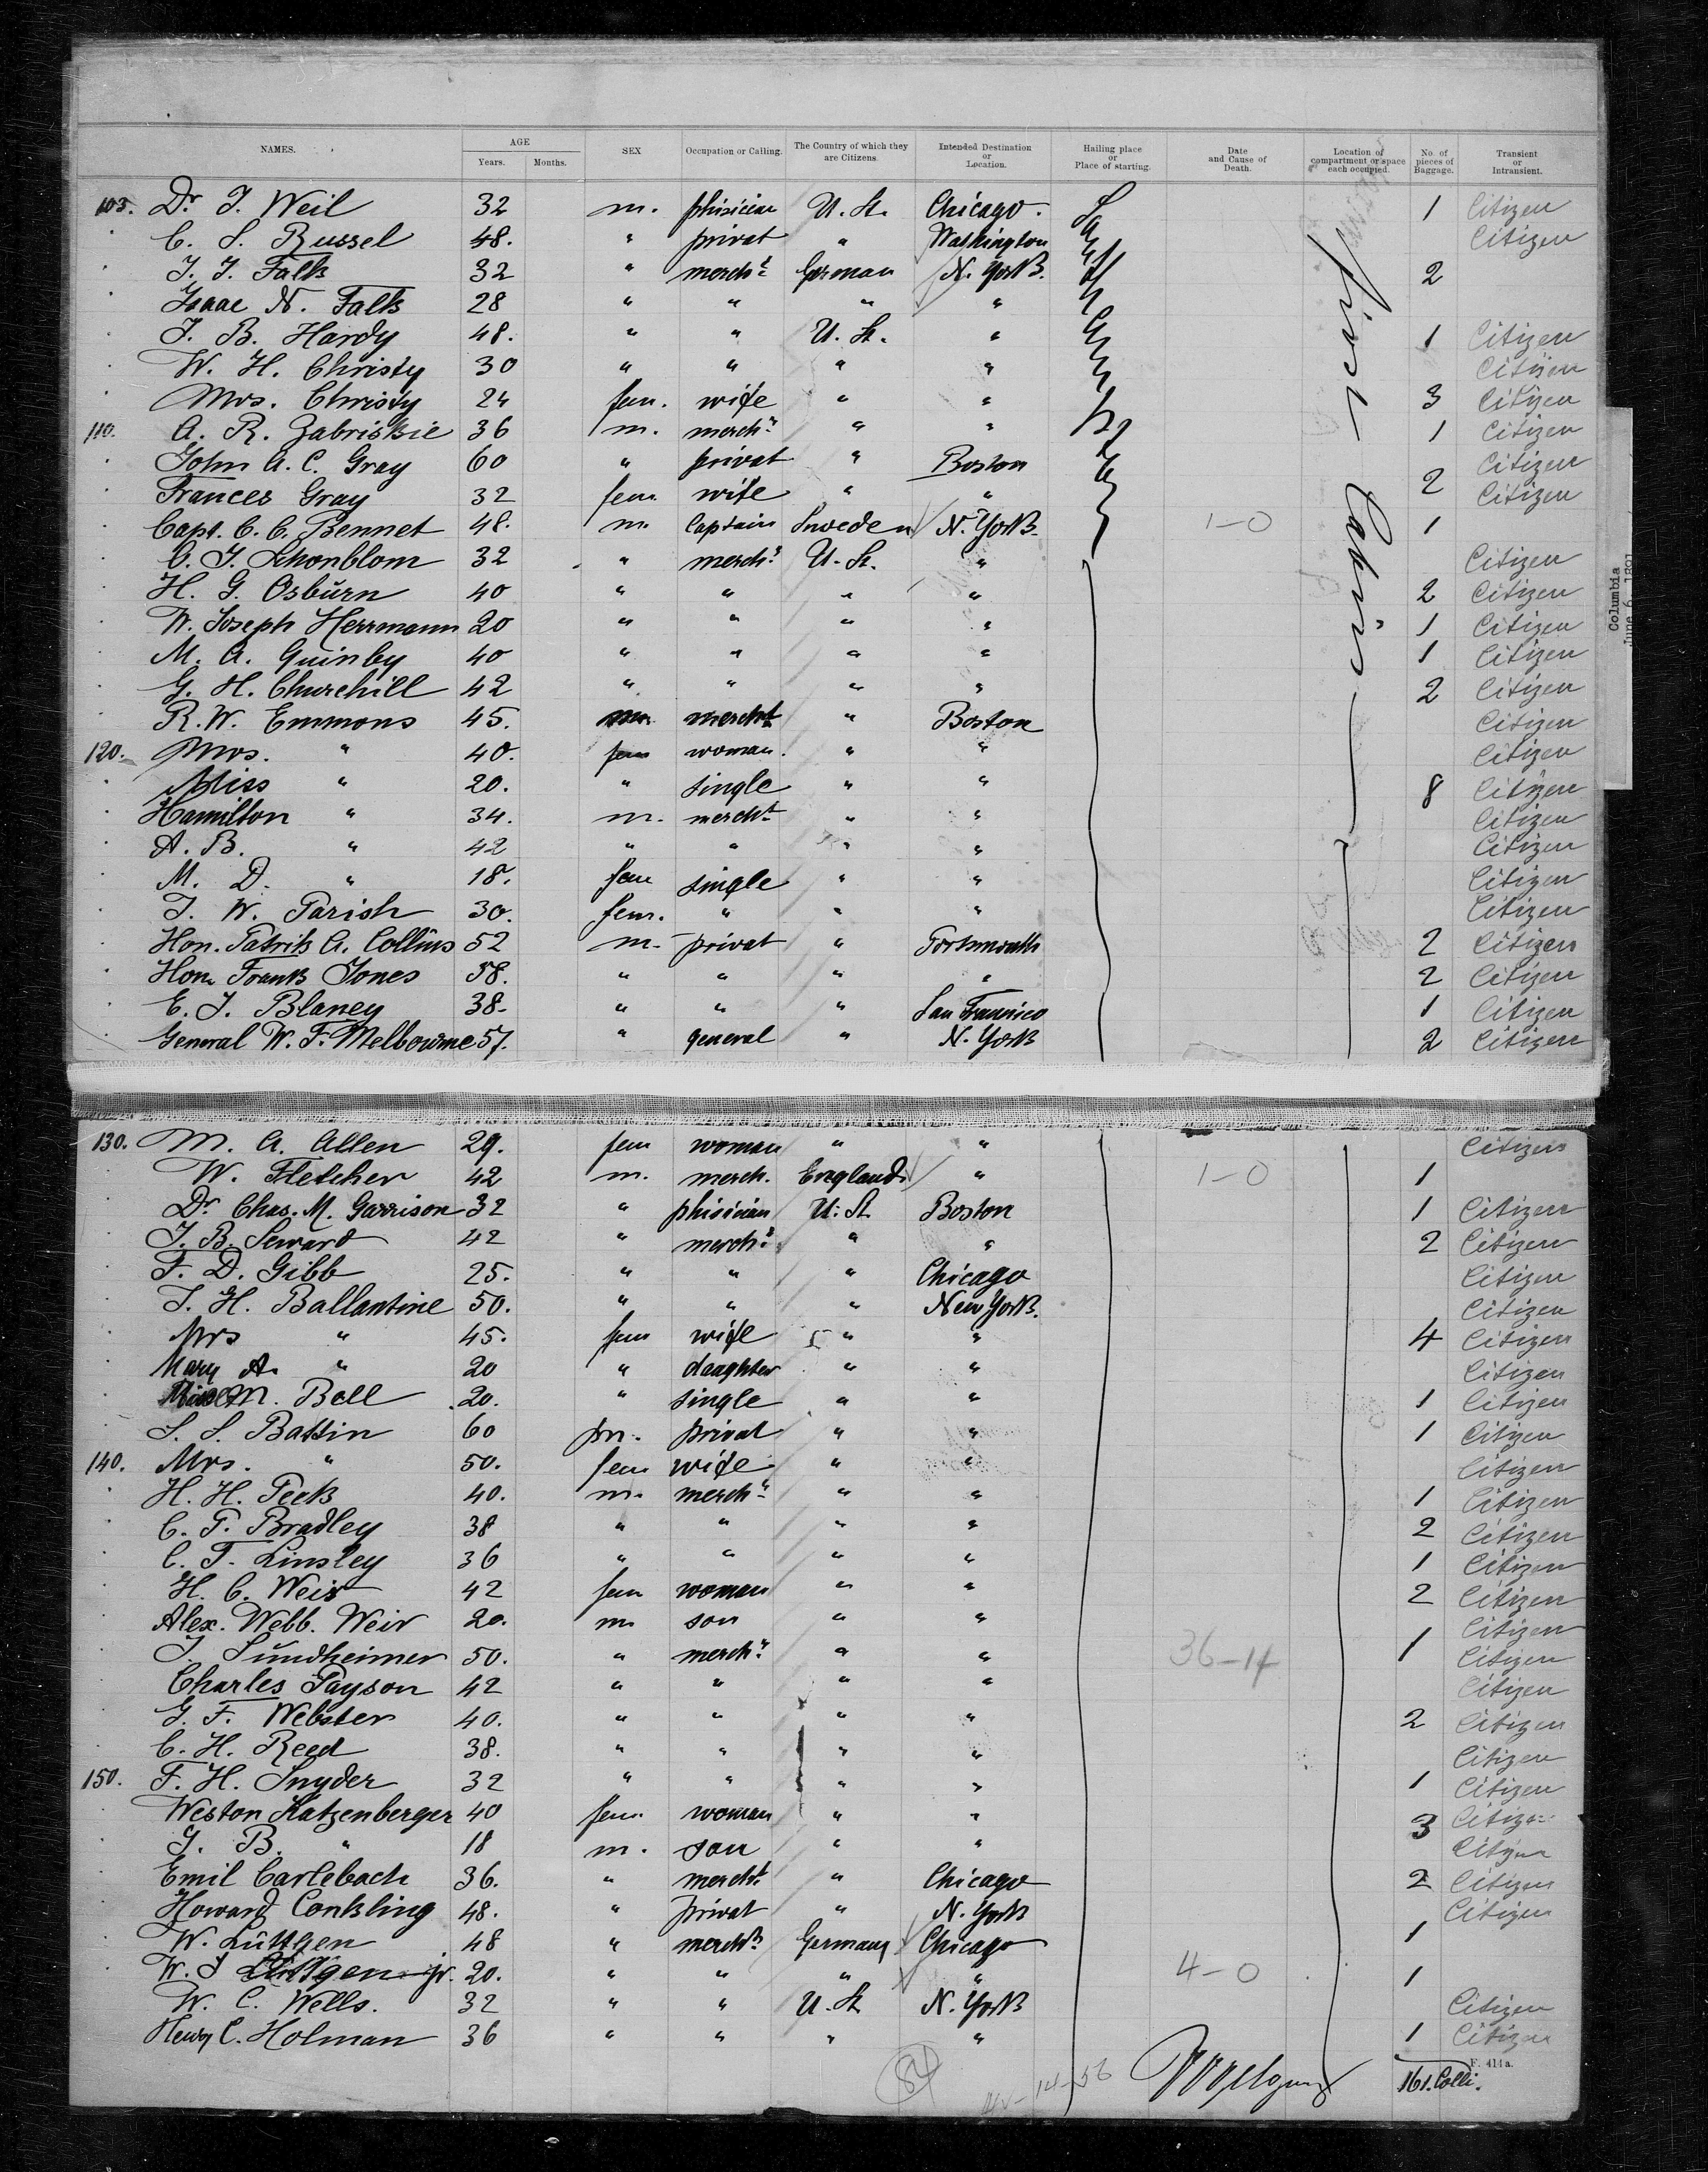 NAMES. AGE SEX Occupation or Calling. The Country of which they are Citizens. Intended Destination or Location. Hailing place or Place of starting. Date and Cause of Death. Location of compartment or space each occupied. No. of pieces of Baggage. Transient or Intransient.
Years. Months.
103. Dr. J. Weil 32 m. phisician U. St. Chicago. 1 Citizen
C. S. Russel 48. " privat " Washington Citizen
J. J. Falk 32 " mercht. German N. York. 2
Isaac N. Falk 28 " " " "
J. B. Hardy 48. " " U. St. " 1 Citizen
W. H. Christy 30 " " " " Citizen
Mrs. Christy 24 fem. wife " " 3 Citizen
110. A. R. Zabriskie 36 m. mercht. " " 1 Citizen
John A. C. Gray 60 " privat " Boston Citizen
Frances Gray 32 fem. wife " " 2 Citizen
Capt. C. C. Bennet 48. m. Captain Sweden N. York. 1-0 1
C. J. Schonblom 32 " mercht. U. St. " Citizen
H. G. Osburn 40 " " " " 2 Citizen
W. Joseph Herrmann 20 " " " " 1 Citizen
M. A. Quinby 40 " " " " 1 Citizen
G. H. Churchill 42 " " " " 2 Citizen
R. W. Emmons 45. m. mercht " Boston Citizen
120. Mrs. " 40. fem woman. " " Citizen
Miss " 20. " single " " 8 Citizen
Hamilton " 34. m. mercht. " " Citizen
A. B. " 42 " " " " Citizen
M. D. " 18. fem single " " Citizen
J. W. Parish 30. fem. " " " Citizen
Hon. Patrik A. Collins 52 m. privat " Portsmouth 2 Citizen
Hon. Frank Jones 58. " " " " 2 Citizen
E. J. Blaney 38. " " " San Francisco 1 Citizen
General W. F. Melbourne 57. " general " N. York 2 Citizen
First Cabin
Columbia
June 6 1891
130. M. A. Allen 29. fem woman " " Citizen
W. Fletcher 42 m. merch. England. " 1-0 1
Dr. Chas. M. Garrison 32 " phisician U. St. Boston 1 Citizen
J. B. Seward 42 " mercht. " " 2 Citizen
F. D. Gibb 25. " " " Chicago Citizen
J. H. Ballantine 50. " " " New York. Citizen
Mrs " 45. fem wife " " 4 Citizen
Mary A. " 20 " daughter " " Citizen
Miss M. Bell 20. " single " " 1 Citizen
S. S. Battin 60 m. privat " " 1 Citizen
140. Mrs. " 50. fem wife " " Citizen
H. H. Peck 40. m. mercht. " " 1 Citizen
C. P. Bradley 38 " " " " 2 Citizen
C. F. Linsley 36 " " " " 1 Citizen
H. C. Weir 42 fem woman " " 2 Citizen
Alex. Webb. Weir 20. m. son " " Citizen
J. Sundheimer 50. " mercht. " " 36-14 1 Citizen
Charles Payson 42 " " " " Citizen
G. F. Webster 40. " " " " 2 Citizen
C. H. Reed 38. " " " " Citizen
150. F. H. Snyder 32 " " " " 1 Citizen
Weston Katzenberger 40 fem woman " " 3 Citizen
J. B. " 18 m. son " " Citizen
Emil Carlebach 36. " mercht. " Chicago 2 Citizen
Howard Conkling 48. " Privat " N. York Citizen
W. Lüttgen 48 " mercht. Germany Chicago 1
W. J Lüttgen jr. 20. " " " " 4-0 1
W. C. Wells. 32 " " U. St. N. York Citizen
Henry C. Holman 36 " " " " 1 Citizen
F. 414a.
84 161. Colli.